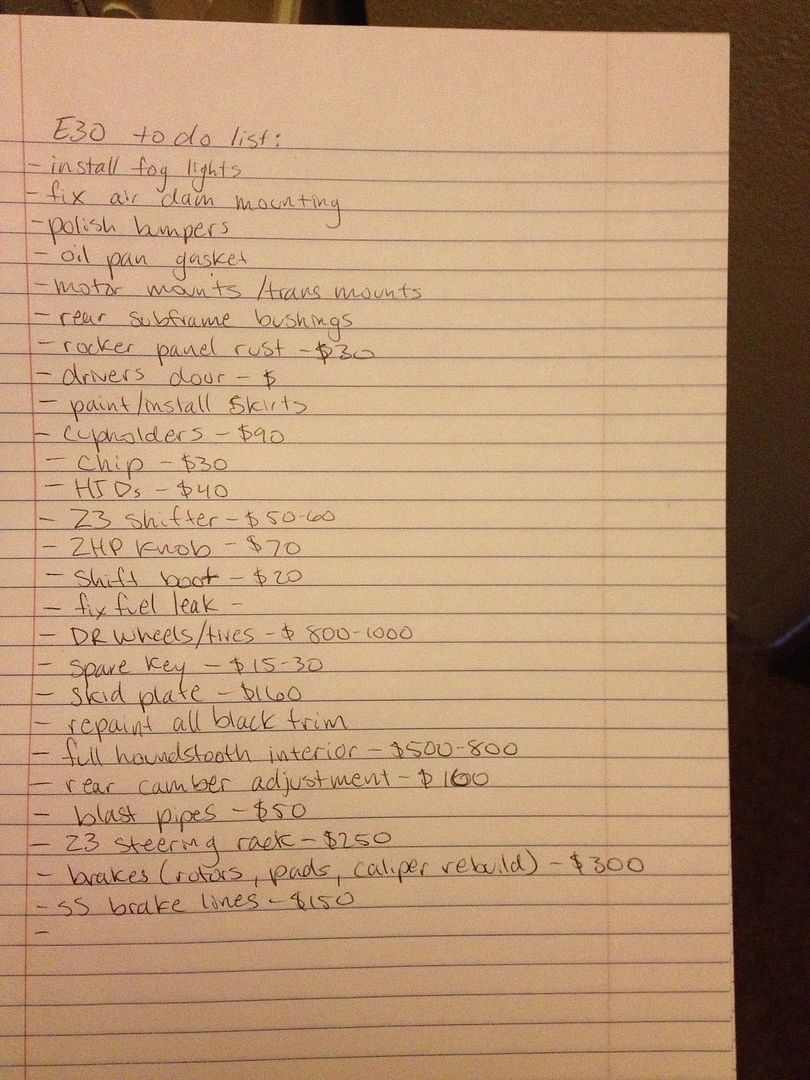 E30 to do list:
- install fog lights
- fix air dam mounting
- polish bumpers
- oil pan gasket
- motor mounts /trans mounts
- rear subframe bushings
- rocker panel rust - $30
- drivers door - $
- paint/install skirts
- cupholders - $90
- chip - $30
- HIDs - $40
- Z3 shifter - $50-60
- ZHP knob - $70
- shift boot - $20
- fix fuel leak -
- DR wheels/tires - $800-1000
- spare key - $15-30
- skid plate - $160
- repaint all black trim
- full houndstooth interior - $500-800
- rear camber adjustment - $100
- blast pipes - $50
- Z3 steering rack - $250
- brakes (rotors, pads, caliper rebuild) - $300
- SS brake lines - $150
-